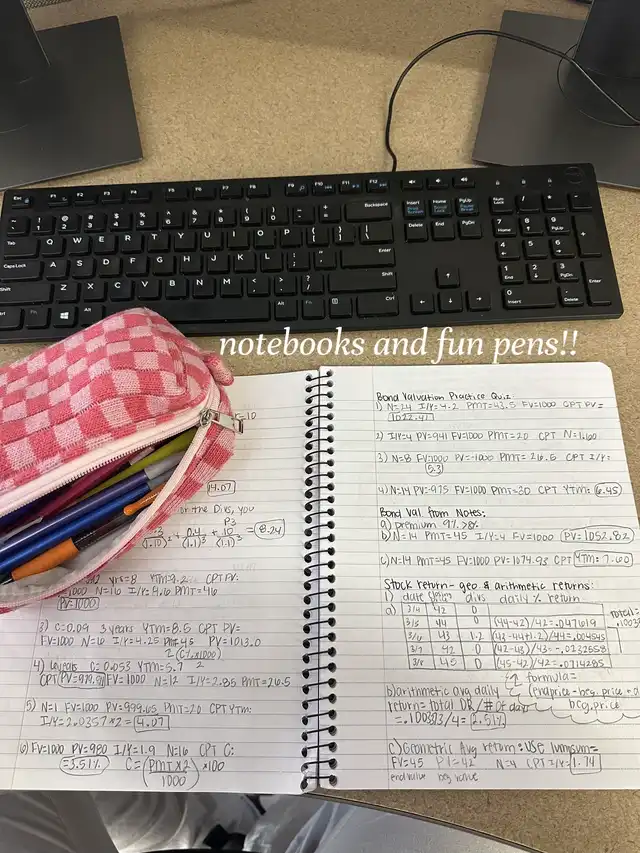 notebooks and fun pens!!
=10
14.07
for the Divs, you
P3
3/(1.10)² + 0.4/(1.1)³ + 10/(1.1)³ = 8.24
yrs=8 YTM=9.2 CPT PV:
N=16 I/Y=4.16 PMT=46
PV=1000
3) C=0.09 3 years YTM=8.5 CPT PV=
FV=1000 N=6 I/Y=4.25 PMT=45 PV=1013.0
2 (C%×1000)
4) 6 years C=0.053 YTM=5.7 2
CPT FV=1000 N=12 I/Y=2.85 PMT=26.5
5) N=1 FV=1000 PV=999.65 PMT=20 CPT YTM:
I/Y=2.0357×2=4.07
6) FV=1000 PV=980 I/Y=1.9 N=16 CPT C:
=3.51% C=(PMT×2/1000)×100
Bond Valuation Practice Quiz
1) N=24 I/Y=4.2 PMT=43.5 FV=1000 CPT PV=
1022.41
2) I/Y=4 PV=941 FV=1000 PMT=20 CPT N=1.60
3) N=8 FV=1000 PV=-1000 PMT=26.5 CPT I/Y=
5.3
4) N=14 PV=-975 FV=1000 PMT=30 CPT YTM: 6.45
Bond Val from Notes:
a) premium
b) N=14 PMT=45 I/Y=4 FV=1000 PV=1052.82
c) N=14 PMT=45 FV=1000 PV=1074.93 CPT YTM: 7.60
Stock return- geo & arithmetic returns:
1) date divs daily % return
a) 3/4 42 0
3/5 44 0 (44-42)/42=.047619
3/6 43 1.2 (43-44+1.2)/44=.004545
3/7 42 0 (42-43)/43=-.0232558
3/8 45 0 (45-42)/42=.0714285
total=
.10033
formula=
(endprice-beg.price+
beg.price
b) arithmetic avg daily
return=total DR/# of days
=.100393/4=2.51%
c) Geometric Avg return: use lumpsum=
FV=45 PV=42 N=4 CPT I/Y=1.74
end value beg value
Esc
F1
F2
F3
F4
F5
F6
F7
F8
F9
F10
F11
F12
Backspace
Tab
Q W E R T Y U I O P
Caps Lock
A S D F G H J K L
Enter
Shift
Z X C V B N M
Shift
Ctrl
Fn
Alt
Alt
Ctrl
Insert
Home
PgUp
Delete
End
PgDn
Num Lock
7 Home
8
9 PgUp
4
5
6
1 End
2
3 PgDn
Enter
0 Insert
. Delete